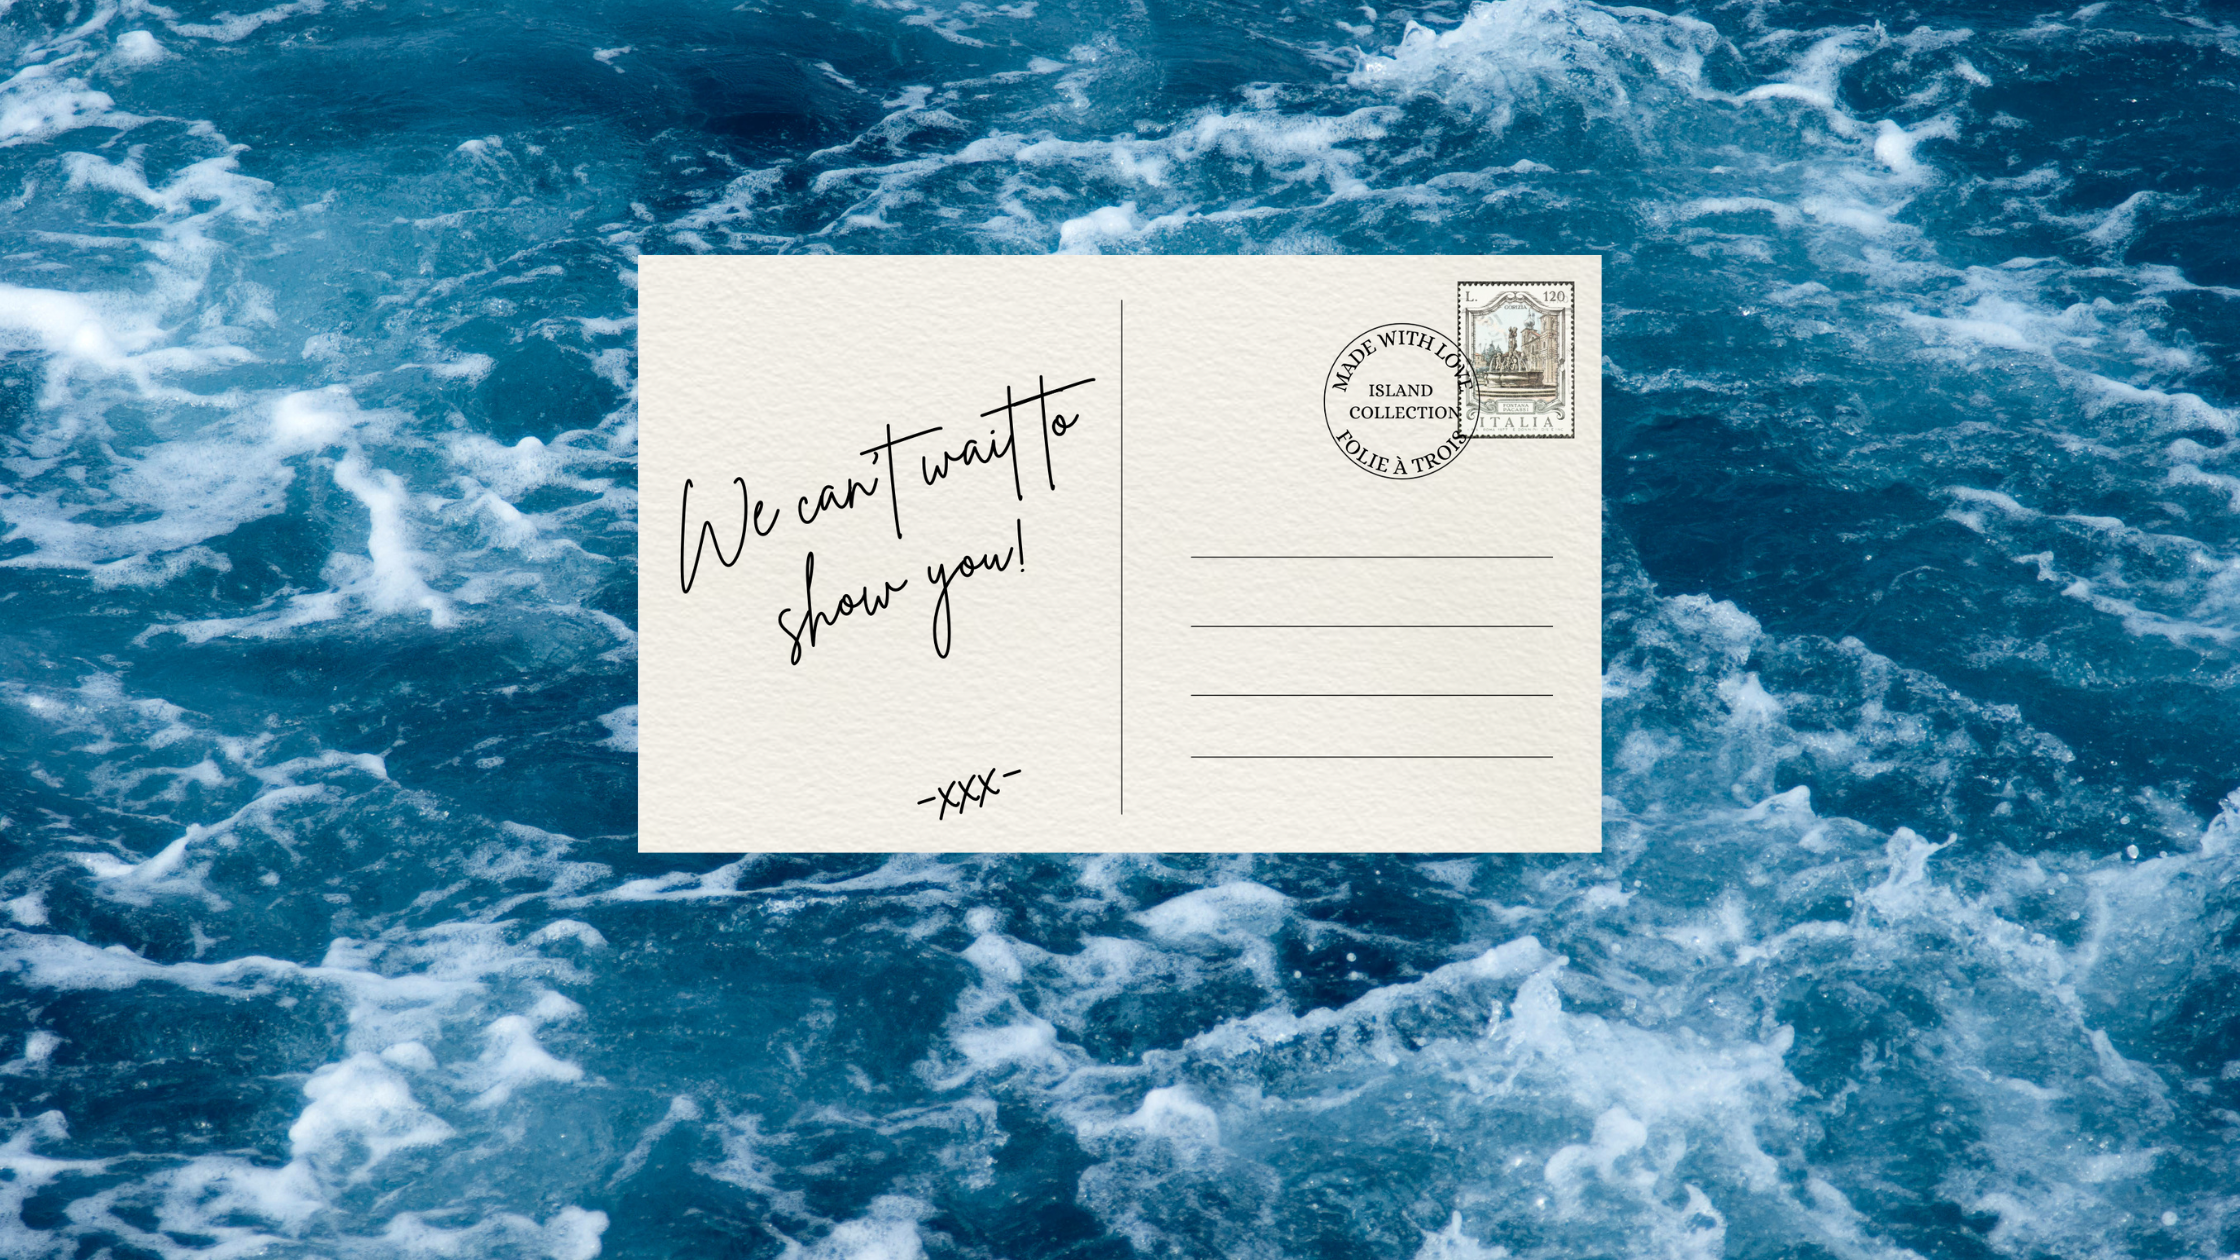 We can't wait to
show you!
-xxx-
MADE WITH LOVE
ISLAND
COLLECTION
FOLIE À TROIS
L. 120
GORIZIA
FONTANA
PACASSI
ITALIA